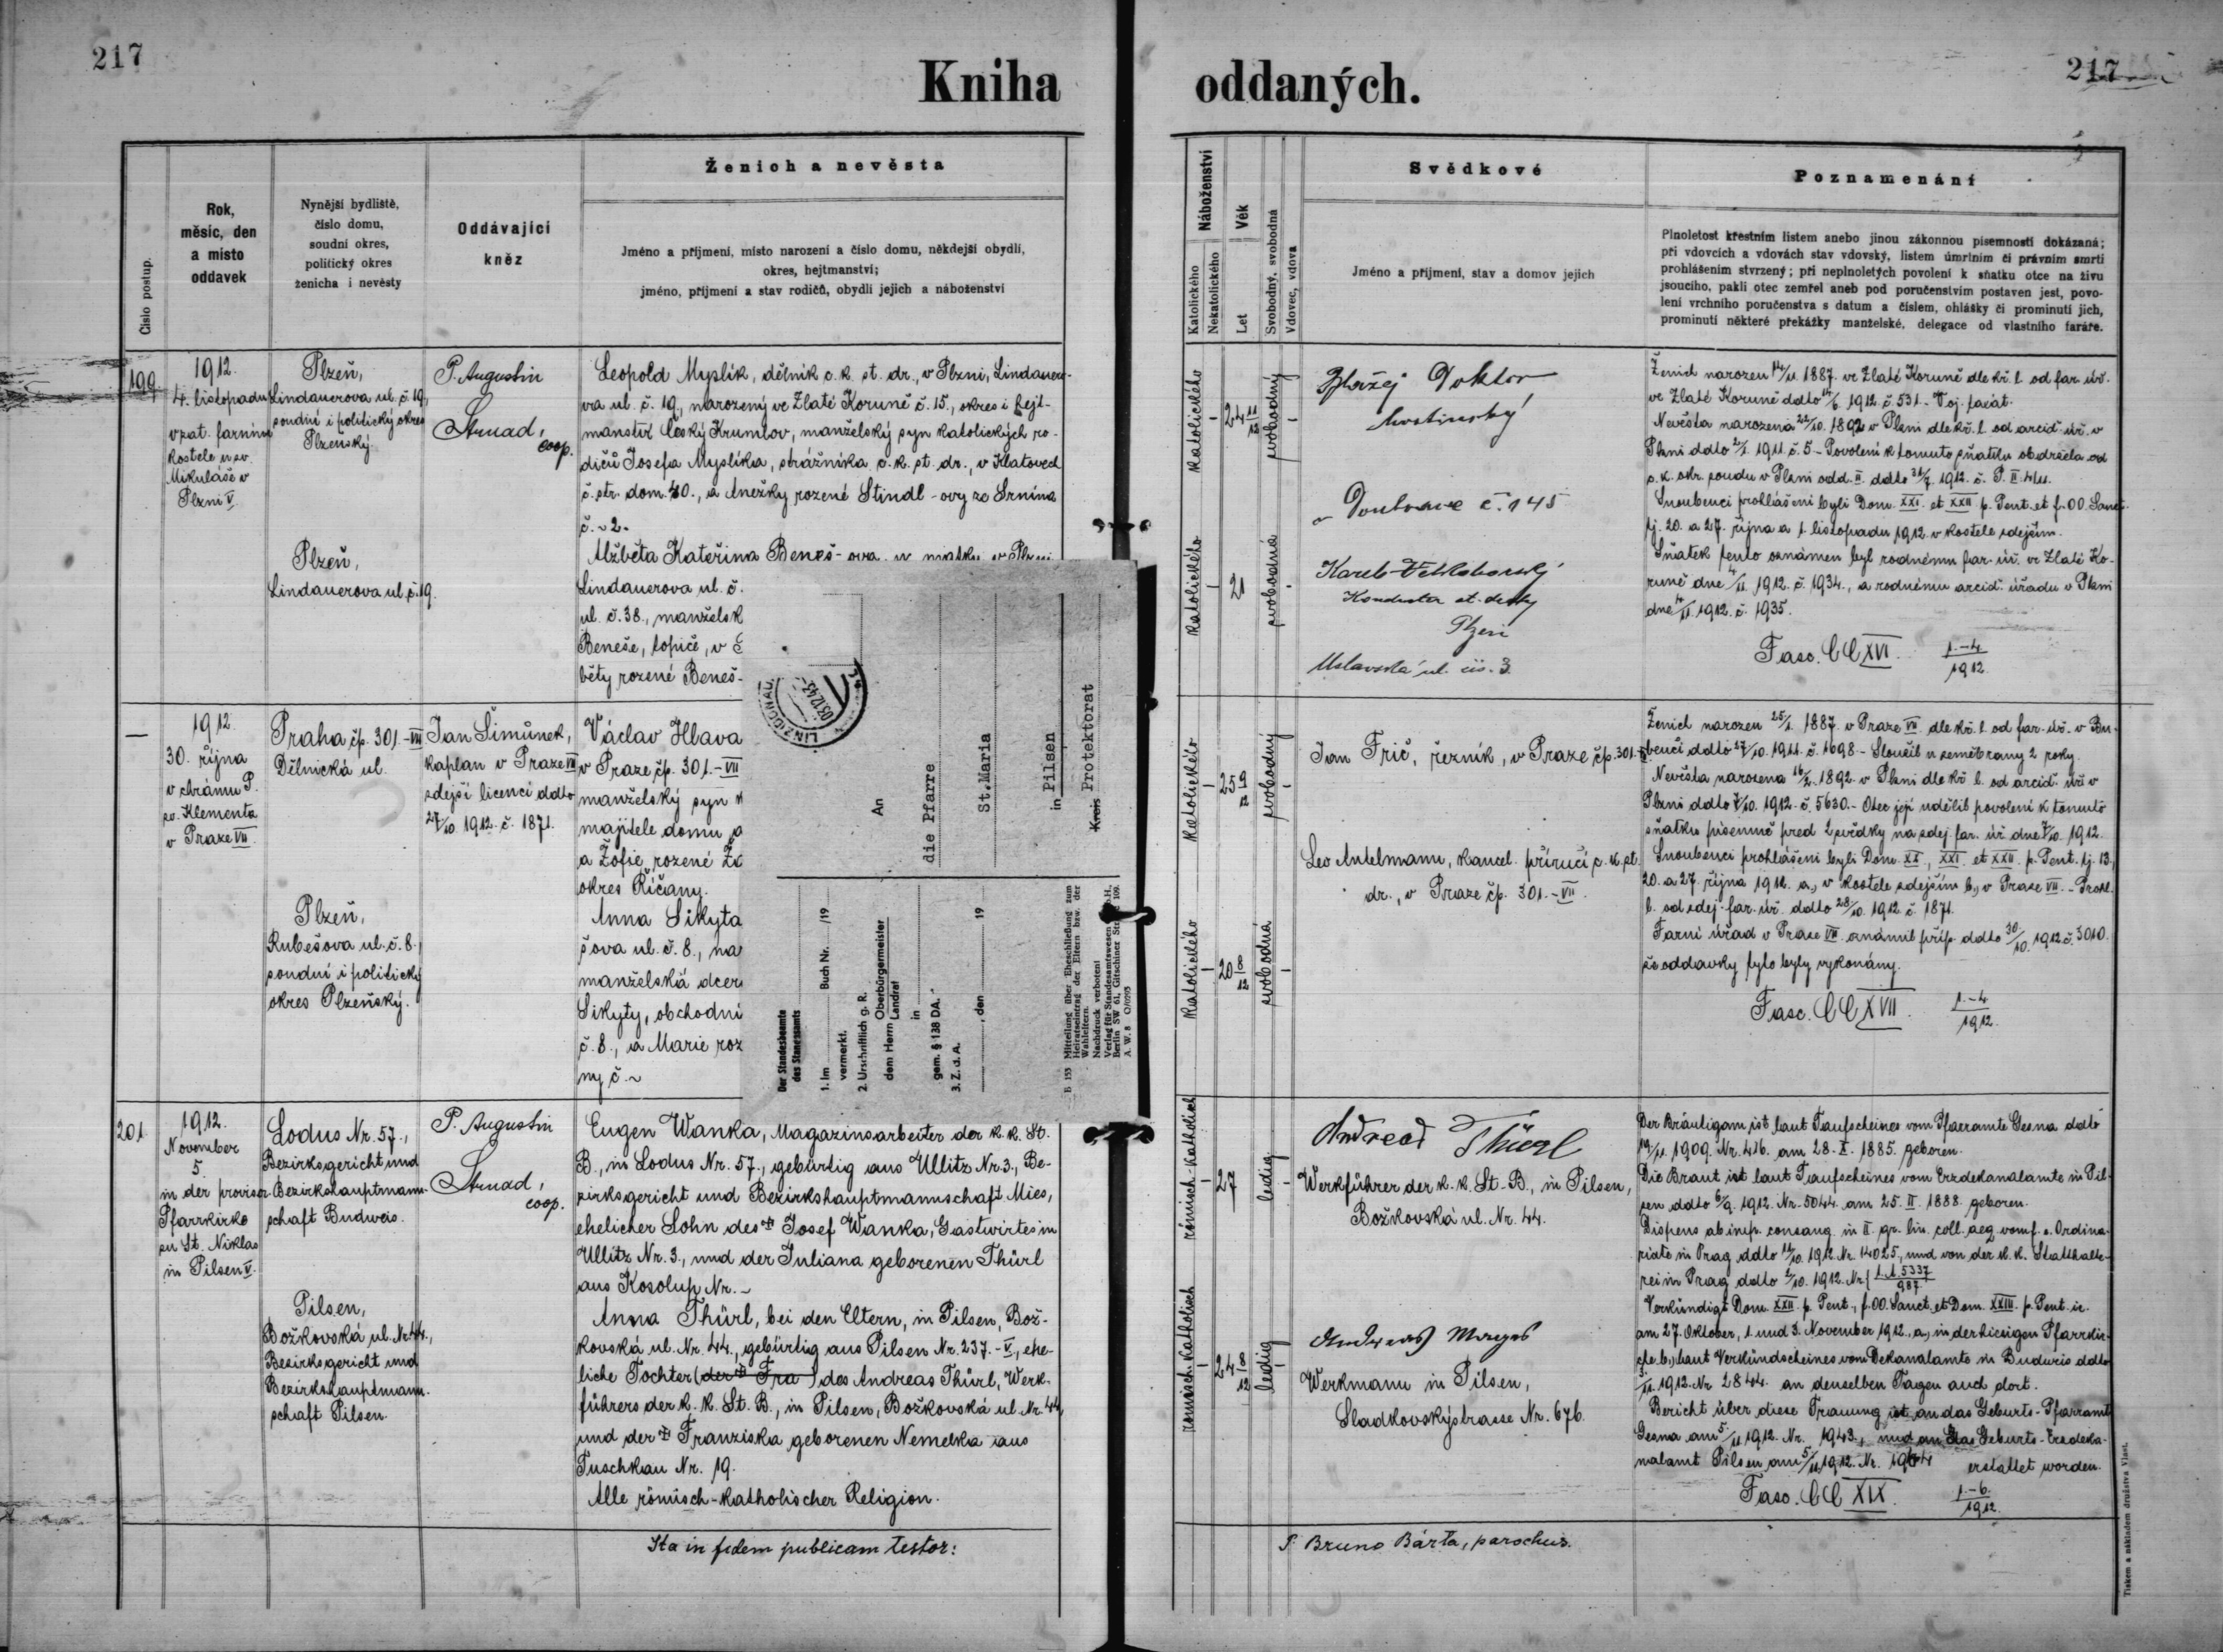 217
Kniha
oddaných.
217
Číslo postup.
Rok,
měsíc, den
a místo
oddavek
Nynější bydliště,
číslo domu,
soudní okres,
politický okres
ženicha i nevěsty
Oddávající
kněz
Ženich a nevěsta
Jméno a příjmení, místo narození a číslo domu, někdejší obydlí,
okres, hejtmanství;
jméno, příjmení a stav rodičů, obydlí jejich a náboženství
Náboženství
Katolického
Nekatolického
Věk
Let
Svobodný, svobodná
Vdovec, vdova
Svědkové
Jméno a příjmení, stav a domov jejich
Poznamenání
Plnoletost křestním listem anebo jinou zákonnou písemností dokázaná;
při vdovcích a vdovách stav vdovský, listem úmrtním či právním smrti
prohlášením stvrzený; při neplnoletých povolení k sňatku otce na živu
jsoucího, pakli otec zemřel aneb pod poručenstvím postaven jest, povo-
lení vrchního poručenstva s datum a číslem, ohlášky či prominutí jich,
prominutí některé překážky manželské, delegace od vlastního faráře.
199
1912.
4. listopadu
v zat. farním
kostele u sv.
Mikuláše v
Plzni V.
Plzeň,
Lindauerova ul. č. 19,
soudní i politický okres
Plzenský.
Plzeň,
Lindauerova ul. č. 19.
P. Augustin
Strnad,
coop.
Leopold Myslík, dělník c. k. st. dr., v Plzni, Lindauero-
va ul. č. 19., narozený ve Zlaté Koruně č. 15., okres i hejt-
manství Český Krumlov, manželský syn katolických ro-
dičů Josefa Myslíka, strážníka c. k. st. dr., v Klatovech
č. str. dom. 40., a Anežky rozené Stindl-ovy ze Srnína
č. 2.
Alžběta Kateřina Beneš-ova, u matky v Plzni
Lindauerova ul. č.
ul. č. 38., manželsk
Beneše, topiče, v
běty rozené Beneš-
katolického
24 11/12
svobodný
katolického
21
svobodná
Blažej Doktor
hostinský
v Doubravce č. 145
Karel
Kondukter st. dráhy
Plzeň
Úslavská ul. čís. 3
Ženich narozen 14/11. 1887. ve Zlaté Koruně dle kř. l. od far. úř.
ve Zlaté Koruně ddto 14/6. 1912. č. 531. - Voj. taxát.
Nevěsta narozena 22/10. 1892 v Plzni dle kř. l. od arcid. úř. v
Plzni ddto 2/1. 1911. č. 5 - Povolení k tomuto sňatku obdržela od
c. k. okr. soudu v Plzni odd. II. ddto 31/7. 1912. č. P. II. 4/11.
Snoubenci prohlášeni byli Dom. XXI. et XXII p. Pent. et f. OO. Sanct.
tj. 20. a 27. října a 1. listopadu 1912. v kostele zdejším.
Sňatek tento oznámen byl rodnému far. úř. ve Zlaté Ko-
runě dne 4/11 1912. č. 1934., a rodnému arcid. úřadu v Plzni
dne 4/11 1912. č. 1935.
Fasc. CC XVI. 1.-4/1912
—
1912
30. října
v chrámu P.
sv. Klementa
v Praze VII.
Praha čp. 301.-VII
Dělnická ul.
Plzeň,
Rubešova ul. č. 8.,
soudní i politický
okres Plzeňský.
Jan Šimůnek,
kaplan v Praze VII
zdejší licencí ddto
27/10. 1912. č. 1871.
Václav Hlava
v Praze čp. 301.-VII
manželský syn
majitele domu
a Žofie, rozené
okres Říčany.
Anna Sikyta
šova ul. č. 8., na
manželská dcer
Sikyty, obchodní
č. 8., a Marie roz
ny č. ~
katolického
25 9/12
svobodný
katolického
20 8/12
svobodná
Jan Frič, řezník, v Praze čp. 301.-VII
Leo Antelmann, kancel. příručí c. k. st.
dr., v Praze čp. 301.-VII.
Ženich narozen 25/1. 1887. v Praze VII dle kř. l. od far. úř. v Bu-
benči ddto 17/10. 1911. č. 1698. - Sloužil u zeměbrany 2 roky.
Nevěsta narozena 16/2. 1892. v Plzni dle kř. l. od arcid. úř. v
Plzni ddto 7/10. 1912. č. 5630. - Otec její udělil povolení k tomuto
sňatku písemně před 2 svědky na zdej. far. úř. dne 7/10. 1912.
Snoubenci prohlášeni byli Dom. XX., XXI. et XXII. p. Pent. tj. 13.,
20. a 27. října 1912. a., v kostele zdejším b., v Praze VII. - Prohl.
l. od zdej. far. úř. ddto 28/10. 1912. č. 1871.
Farní úřad v Praze VII. oznámil příp. ddto 30/10. 1912. č. 3010.
že oddavky tyto byly vykonány.
Fasc. CC XVII. 1.-4/1912.
An
die Pfarre
St.Maria
in Pilsen
Kreis Protektorat
Der Standesbeamte
des Standesamts
1. Im Buch Nr. /19
vermerkt.
2. Urschriftlich g. R.
dem Herrn Oberbürgermeister
Landrat
in
gem. § 138 DA.
3. Z. d. A.
, den 19
B 153 Mitteilung über Eheschließung zum
Heiratseintrag der Eltern bzw. der
Wahleltern.
Nachdruck verboten!
Verlag für Standesamtswesen
Berlin SW 61, Gitschiner Str. 109.
201
1912.
November
5.
in der provisor.
Pfarrkirke
zu St. Niklas
in Pilsen V.
Lodus Nr. 57.,
Bezirksgericht und
Bezirkshauptmann-
schaft Budweis.
Pilsen,
Božkovská ul. Nr. 44.,
Bezirksgericht und
Bezirkshauptmann-
schaft Pilsen.
P. Augustin
Strnad,
coop.
Eugen Wanka, Magazinsarbeiter der k. k. St.
B., in Lodus Nr. 57., gebürtig aus Ullitz Nr. 3., Be-
zirksgericht und Bezirkshauptmannschaft Mies,
ehelicher Sohn des ✠ Josef Wanka, Gastwirtes in
Ullitz Nr. 3., und der Juliana geborenen Thürl
aus Kosolup Nr. -
Anna Thürl, bei den Eltern, in Pilsen, Bož-
kovská ul. Nr. 44., gebürtig aus Pilsen Nr. 237.-V., ehe-
liche Tochter (der ✠ Fra) des Andreas Thürl, Werk-
führers der k. k. St. B., in Pilsen, Božkovská ul. Nr. 44,
und der ✠ Franziska geborenen Nemelka aus
Tuschkau Nr. 19.
Alle römisch-katholischer Religion.
römisch-katholisch
27
ledig
römisch-katholisch
24 8/12
ledig
Andreas Thürl
Werkführer der k. k. St.-B., in Pilsen,
Božkovská ul. Nr. 44.
Werkmann in Pilsen,
Sladkovskýstrasse Nr. 676.
Der Bräutigam ist laut Taufscheines vom Pfarramte Gesna ddto
19/11. 1909. Nr. 416. am 28. X. 1885. geboren.
Die Braut ist laut Taufscheines vom Erzdekanalamte in Pil-
sen ddto 6/9. 1912. Nr. 5044. am 25. II. 1888. geboren.
Dispens ab imp. consang. in II. gr. lin. coll. aeq. vom f. e. Ordina-
riate in Prag ddto 11/10. 1912. Nr. 14025., und von der k. k. Statthalte-
rei in Prag ddto 2/10. 1912. Nr. 5337/987.
Verkündigt Dom. XXII. p. Pent., f. OO. Sanct. et Dom. XXIII. p. Pent. ie.
am 27. Oktober, 1. und 3. November 1912. a., in der hiesigen Pfarrkir-
che b., laut Verkündscheines vom Dekanalamte in Budweis ddto
3./11. 1912. Nr. 2844. an denselben Tagen auch dort.
Bericht über diese Trauung ist an das Geburts-Pfarramt
Gesna am 5/11 1912. Nr. 1943., und an das Geburts-Erzdeka-
nalamt Pilsen am 5/11. 1912. Nr. 1944 erstattet worden.
Fasc. CC XIX. 1.-6./1912
Ita in fidem publicam testor:
P. Bruno Bárta, parochus.
Tiskem a nákladem družstva Vlast.